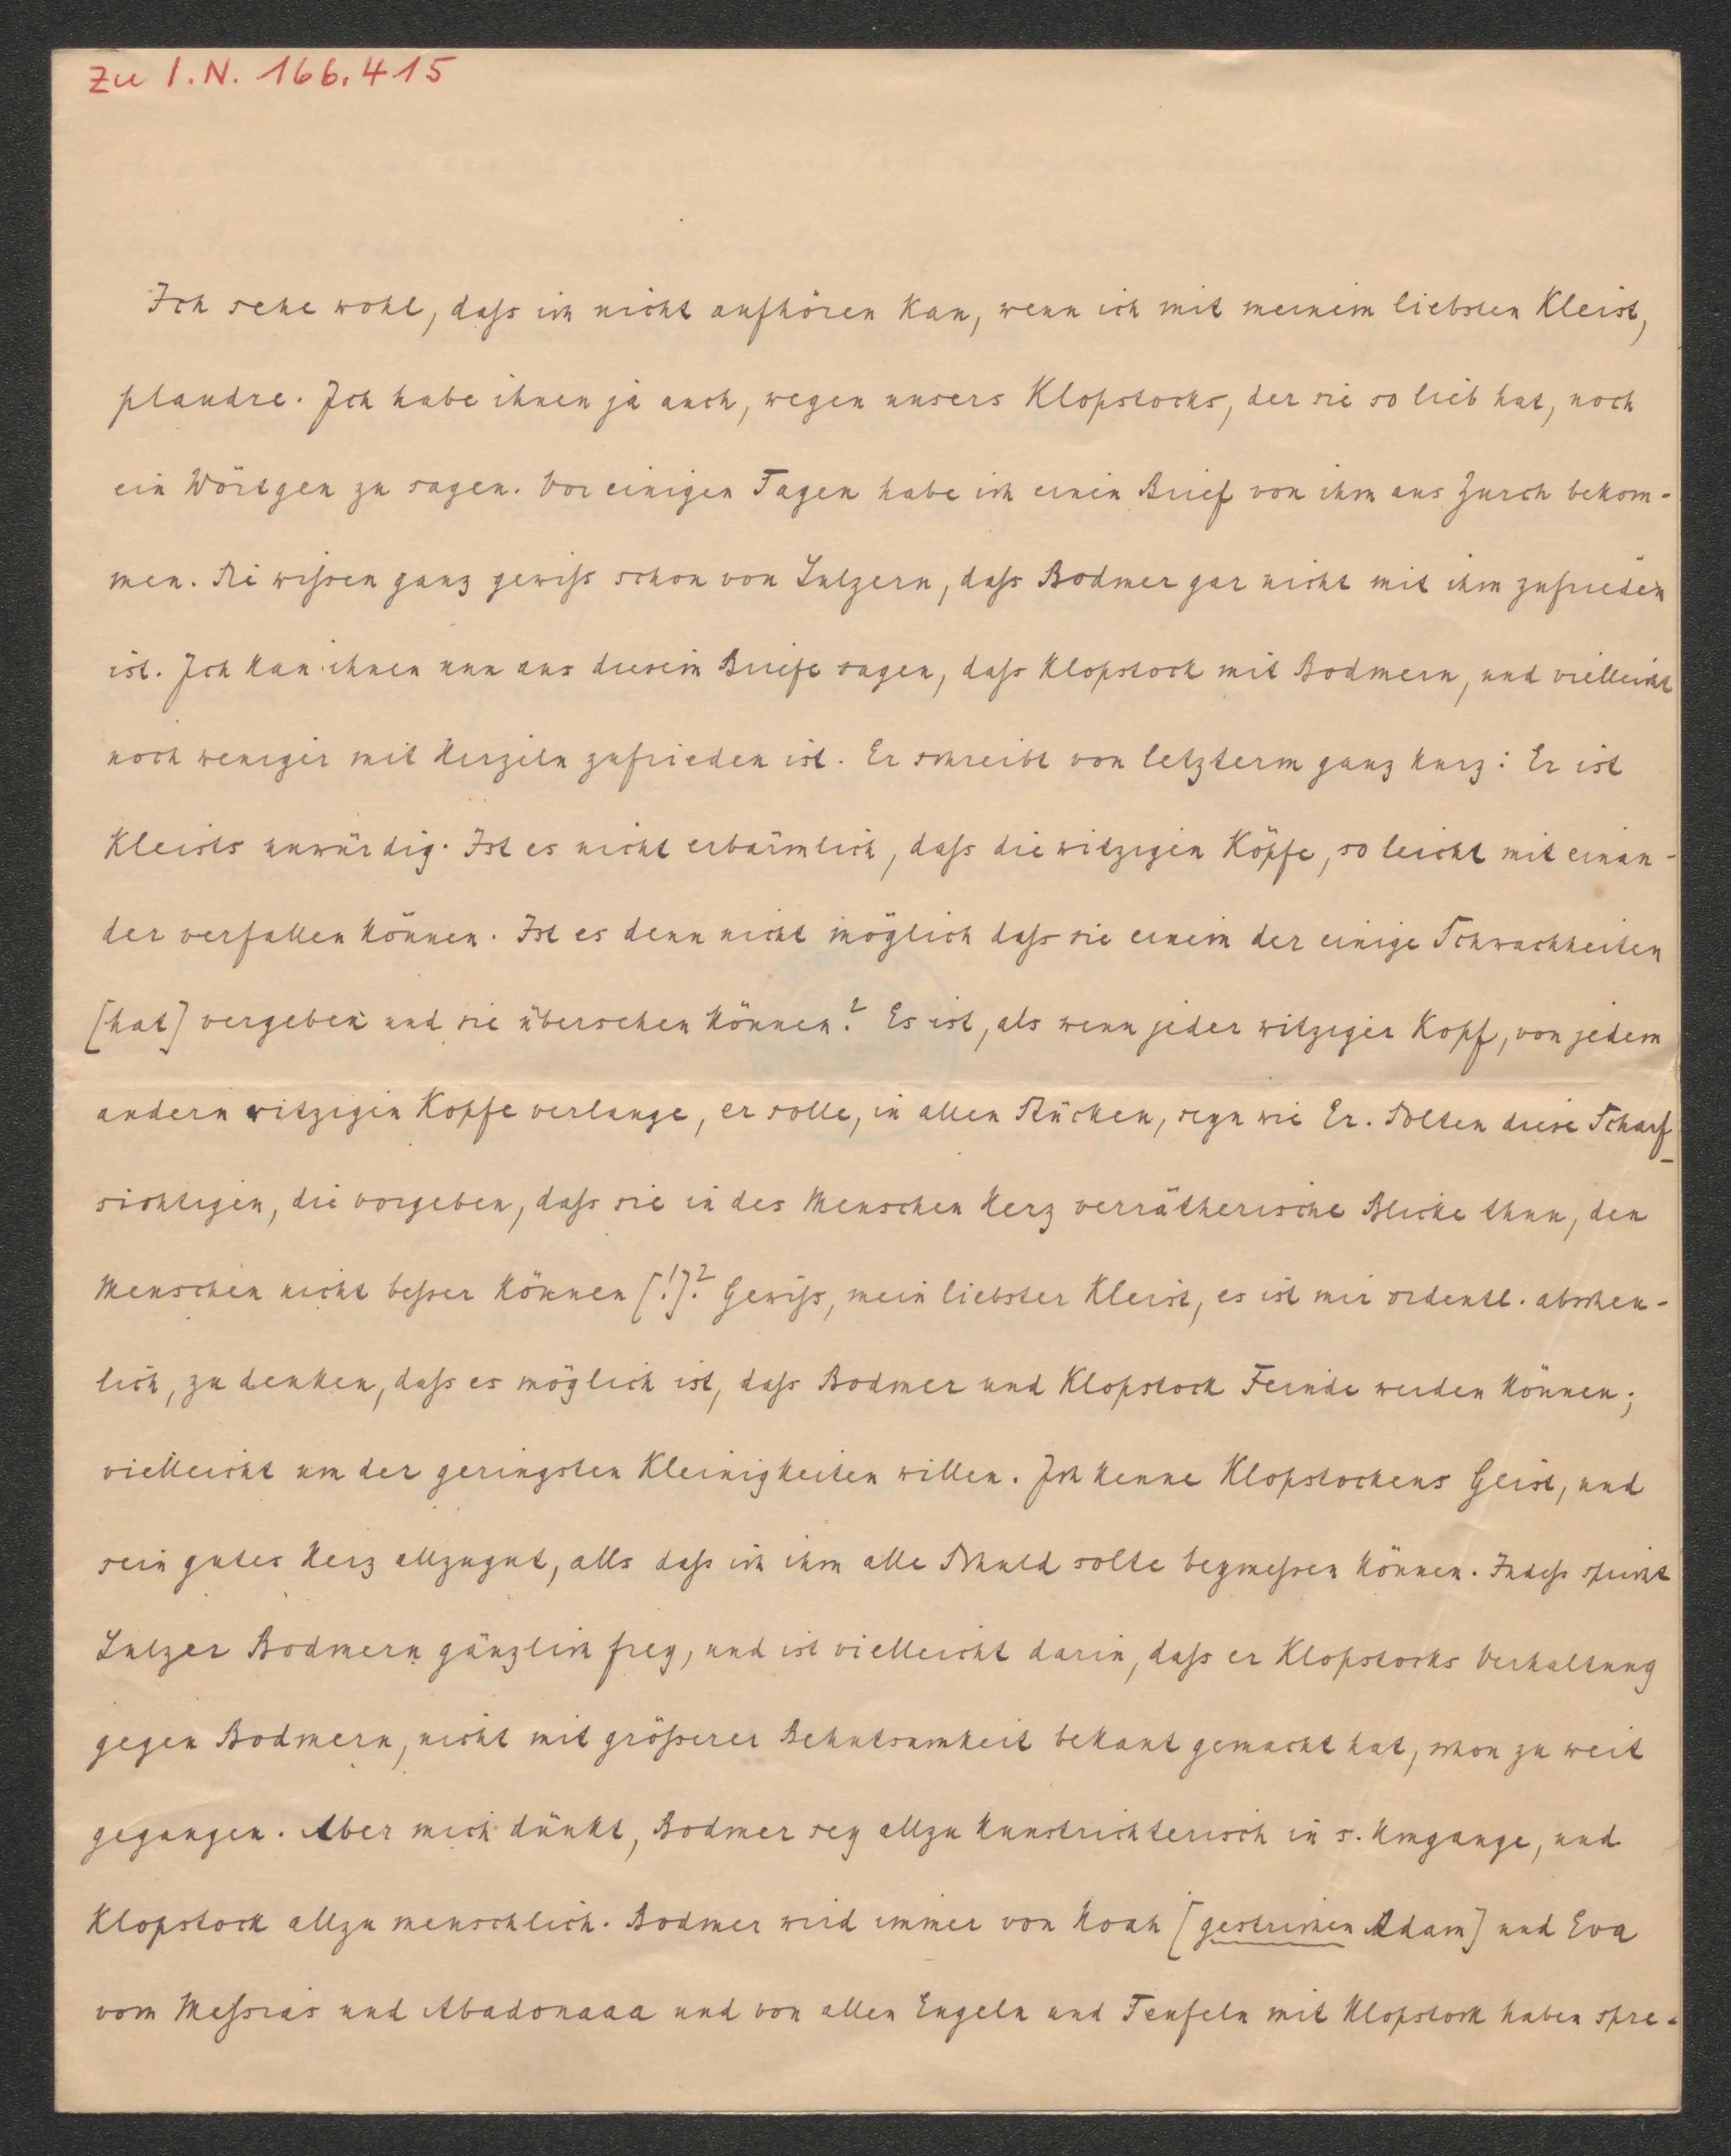 Zu I.N. 166.415
Ich sehe wohl, daſs ich nicht aufhören kan, wenn ich mit meinem liebsten Kleist,
plaudre. Ich habe ihnen ja auch, wegen unsers Klopstocks, der sie so lieb hat, noch
ein Wörtgen zu sagen. Vor einigen Tagen habe ich einen Brief von ihm aus Zurch bekom-
men. Sie wiſsen ganz gewiſs schon von Sulzern, daſs Bodmer gar nicht mit ihm zufrieden
ist. Ich kan ihnen nun aus diesem Briefe sagen, daſs Klopstock mit Bodmern, und vielleicht
noch weniger mit Herzeln zufrieden ist. Er schreibt von letzterm ganz kurz: Er ist
Kleists unwürdig. Ist es nicht erbärmlich, daſs die witzigen Köpfe, so leicht mit einan-
der verfallen können. Ist es denn nicht möglich daſs sie einem der einige Schwachheiten
[hat] vergeben und sie übersehen können? Es ist, als wenn jeder witziger Kopf, von jedem
andern witzigen Kopfe verlange, er solle, in allen Stücken, seyn wie Er. Solten diese Scharf-
sichtigen, die vorgeben, daſs sie in des Menschen Herz verrätherische Blicke thun, den
Menschen nicht beſser können [!]? Gewiſs, mein liebster Kleist, es ist mir ordentl. abscheu-
lich, zu denken, daſs es möglich ist, daſs Bodmer und Klopstock Feinde werden können;
vielleicht um der geringsten Kleinigkeiten willen. Ich kenne Klopstockens Geist, und
sein gutes Herz allzugut, alls daſs ich ihm alle Schuld solte beymeſsen können. Indeſs spricht
Sulzer Bodmern gänzlich frey, und ist vielleicht darin, daſs er Klopstocks Verhaltung
gegen Bodmern, nicht mit gröſserer Behutsamkeit bekant gemacht hat, schon zu weit
gegangen. Aber mich dünkt, Bodmer sey allzu kunstrichterisch in s. Umgange, und
Klopstock allzu menschlich. Bodmer wird immer von Noah [gestrichen Adam] und Eva
vom Meſsias und Abadonaaa und von allen Engeln und Teufeln mit Klopstock haben spre-